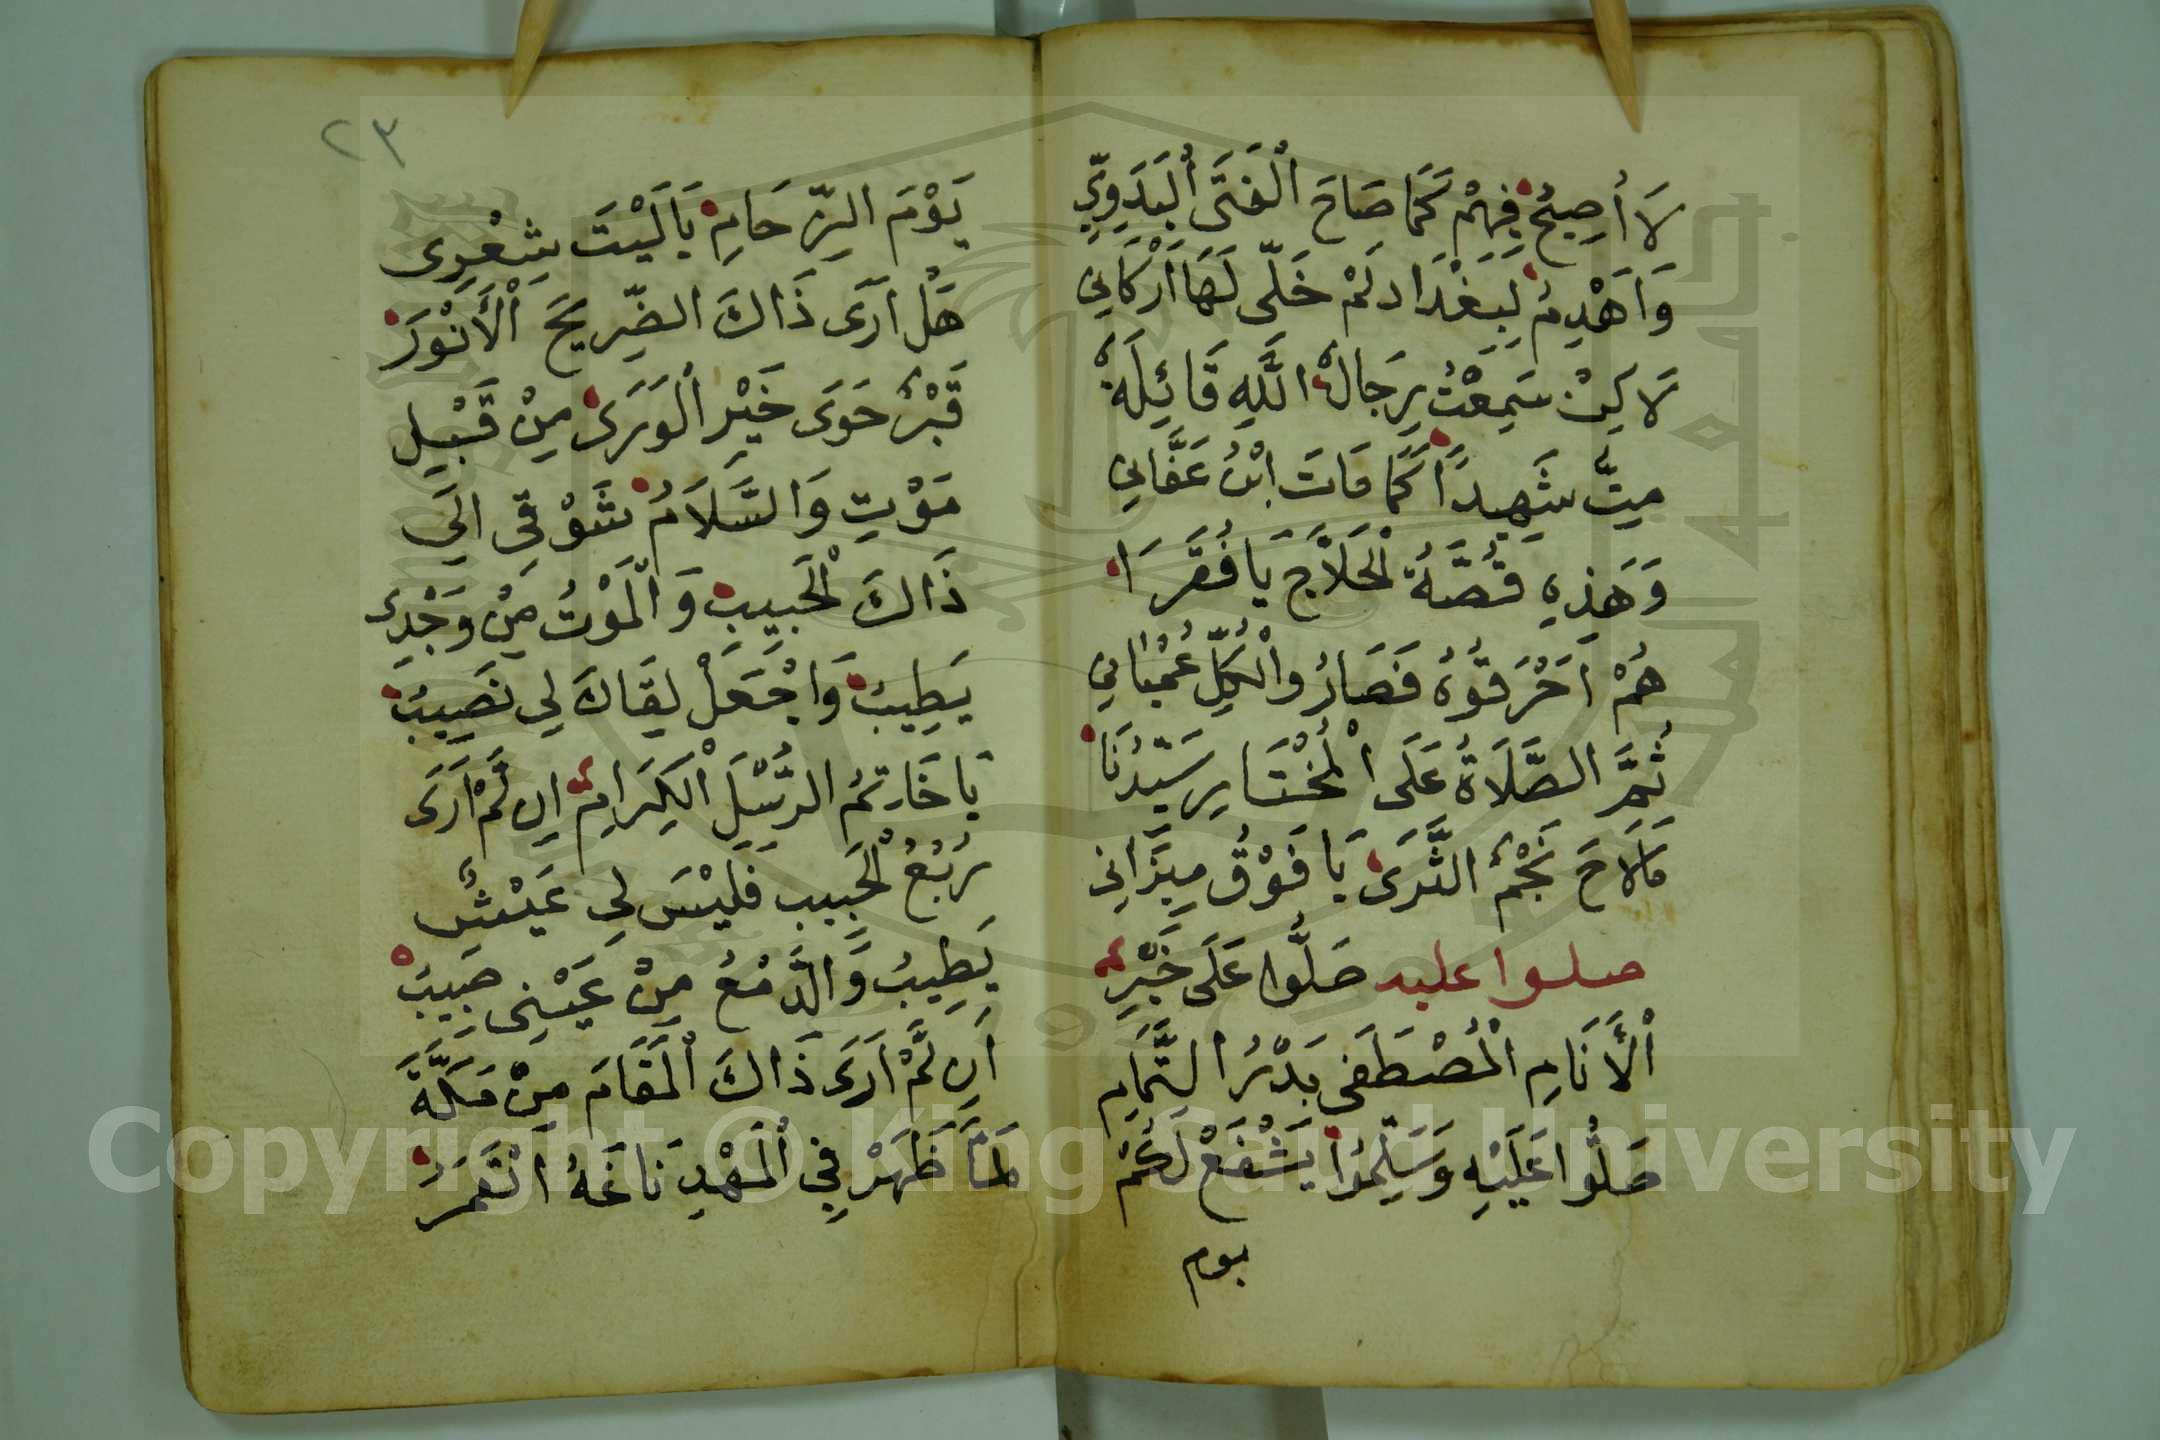 لَا أُصِيحُ فِيهُمْ كَمَا صَاحَ الْفَتَى الْبَدَوِيِّ
وَاَهْدِمُ لِبَغْدَاد لَمْ خَلّى لَهَا اَرْكَانِي
لَاكِنْ سَمِعْتُ رِجَالُ اللَّهِ قَائِلَةً
مِتّ شَهِيداً كَمَا مَاتَ ابْنُ عَفَّانِي
وَهَذِهِ قُصَّةُ الْحَلَّاجِ يَا فُقَرَا
هُمْ اَحْرَقُوهُ فَصَارُوا لْكُلِّ عُمْيَانِي
ثُمَّ الصَّلَاةُ عَلَى الْمُخْتَارِ سَيّدُنَا
مَالَاحَ نَجْمُ الثَّرَى يَا فَوْقُ مِيزَانِي
صلوا عليه صَلُّوا عَلَى خَيْرِ
الْأَنَامِ الْمُصْطَفَى بَدْرُ التَّمَامِ
صَلُّوا عَلَيْهِ وَسَلِّمُوا يَشْفَعْ لَكُمْ
يوم
٢٣
يَوْمَ الزِّحَامِ يَا لَيْتَ شِعْرِى
هَلْ اَرَى ذَاكَ الضّرِيحَ الْأَنْوَرْ
قَبْرٌ حَوَى خَيْرِ الْوَرَى مِنْ قَبْلِ
مَوْتِ وَالسَّلَامُ شَوْقِي الَى
ذَاكَ الْحَبِيبِ وَالْمَوْتُ مِنْ وَجْدِى
يَطِيبُ وَاجْعَلْ لِقَاكَ لِي نَصِيبُ
يَا خَاتِمُ الرُّسْلِ الْكِرَامِ اِن لَمْ اَرَى
رَبْعُ الْحَبِيب فَلَيْسَ لِي عَيْشٌ
يَطِيبُ وَالدَّمْعُ مِنْ عَيْنِى صَبِيبْ
اِن لَمْ اَرَى ذَاكَ الْمَقَامَ مِنْ مَكَّةَ
لَمَّا ظَهَرْ فِي الْمَهْدِ نَاغَهُ الْقَمَرُ
Copyright © King Saud University